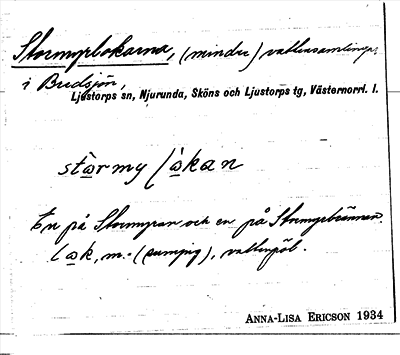 Stormyrlokarna, (mindre) vattensamlingar
i Bredsjön,
Ljustorps sn, Njurunda, Sköns och Ljustorps tg, Västernorrl. l.
stòrmy/lòkan
En på Stormyran och en på Stormyrbrännan.
lok, m. (sumpig), vattenpöl.
ANNA-LISA ERICSON 1934